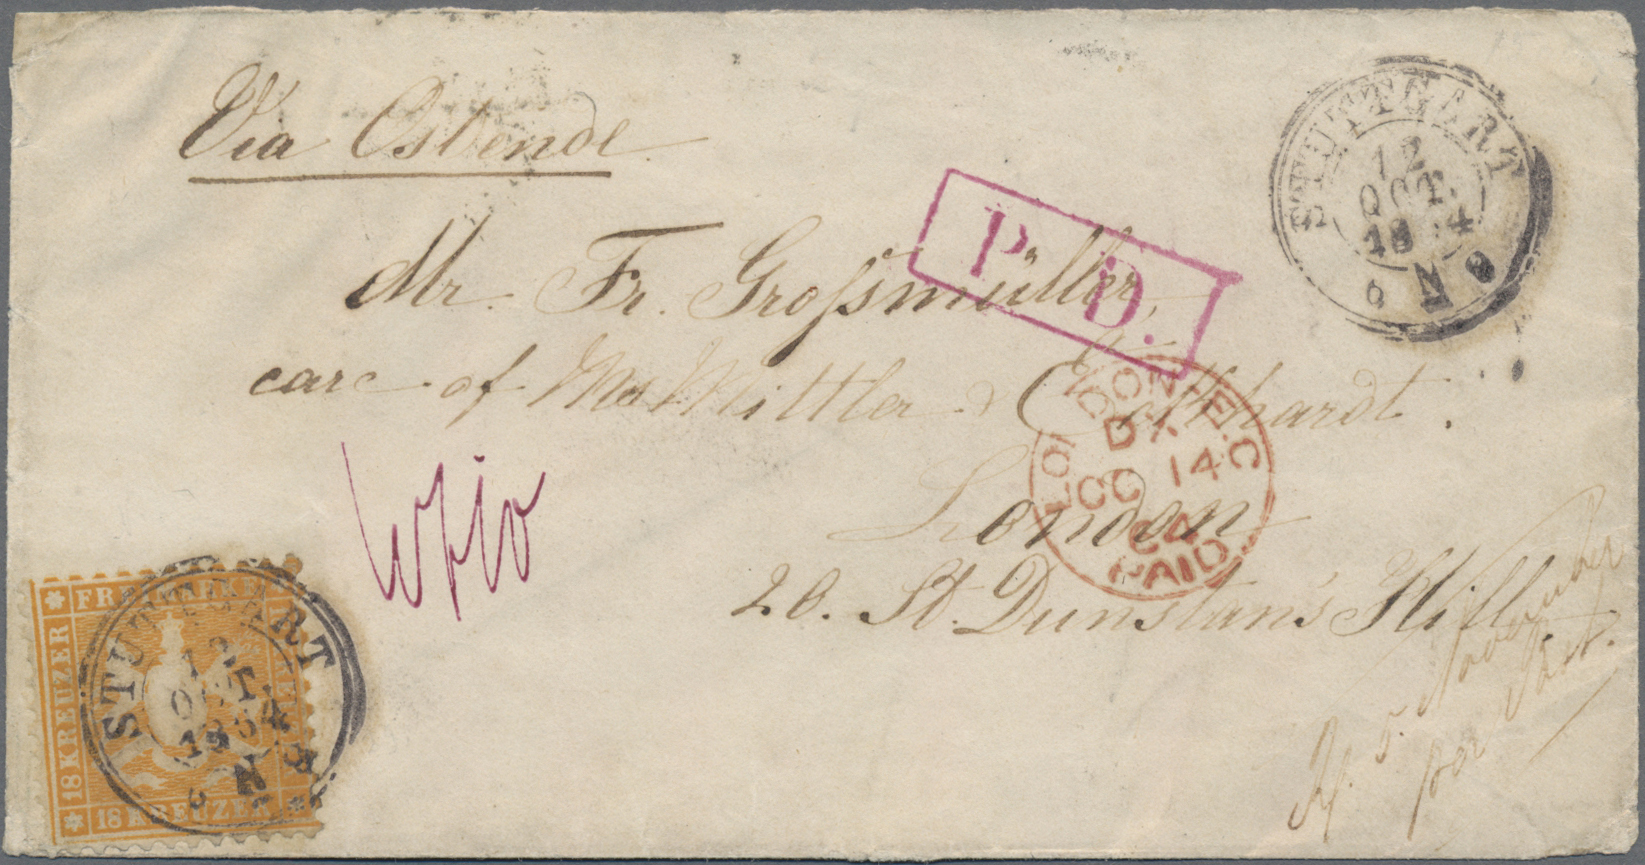 Via Ostende
STUTTGART
12
OCT.
1864
6 N 8
P.D.
Mr. Fr. Großmüller,
care of Mrs Mittler & Gotthardt.
LONDON E.C
OC 14
64
PAID
London
20. St. Dunstan's Hill.
5. November
per
FREIMARKE
18 KREUZER
18 KREUZER
STUTTGART
12
OCT.
1864
6 N 8